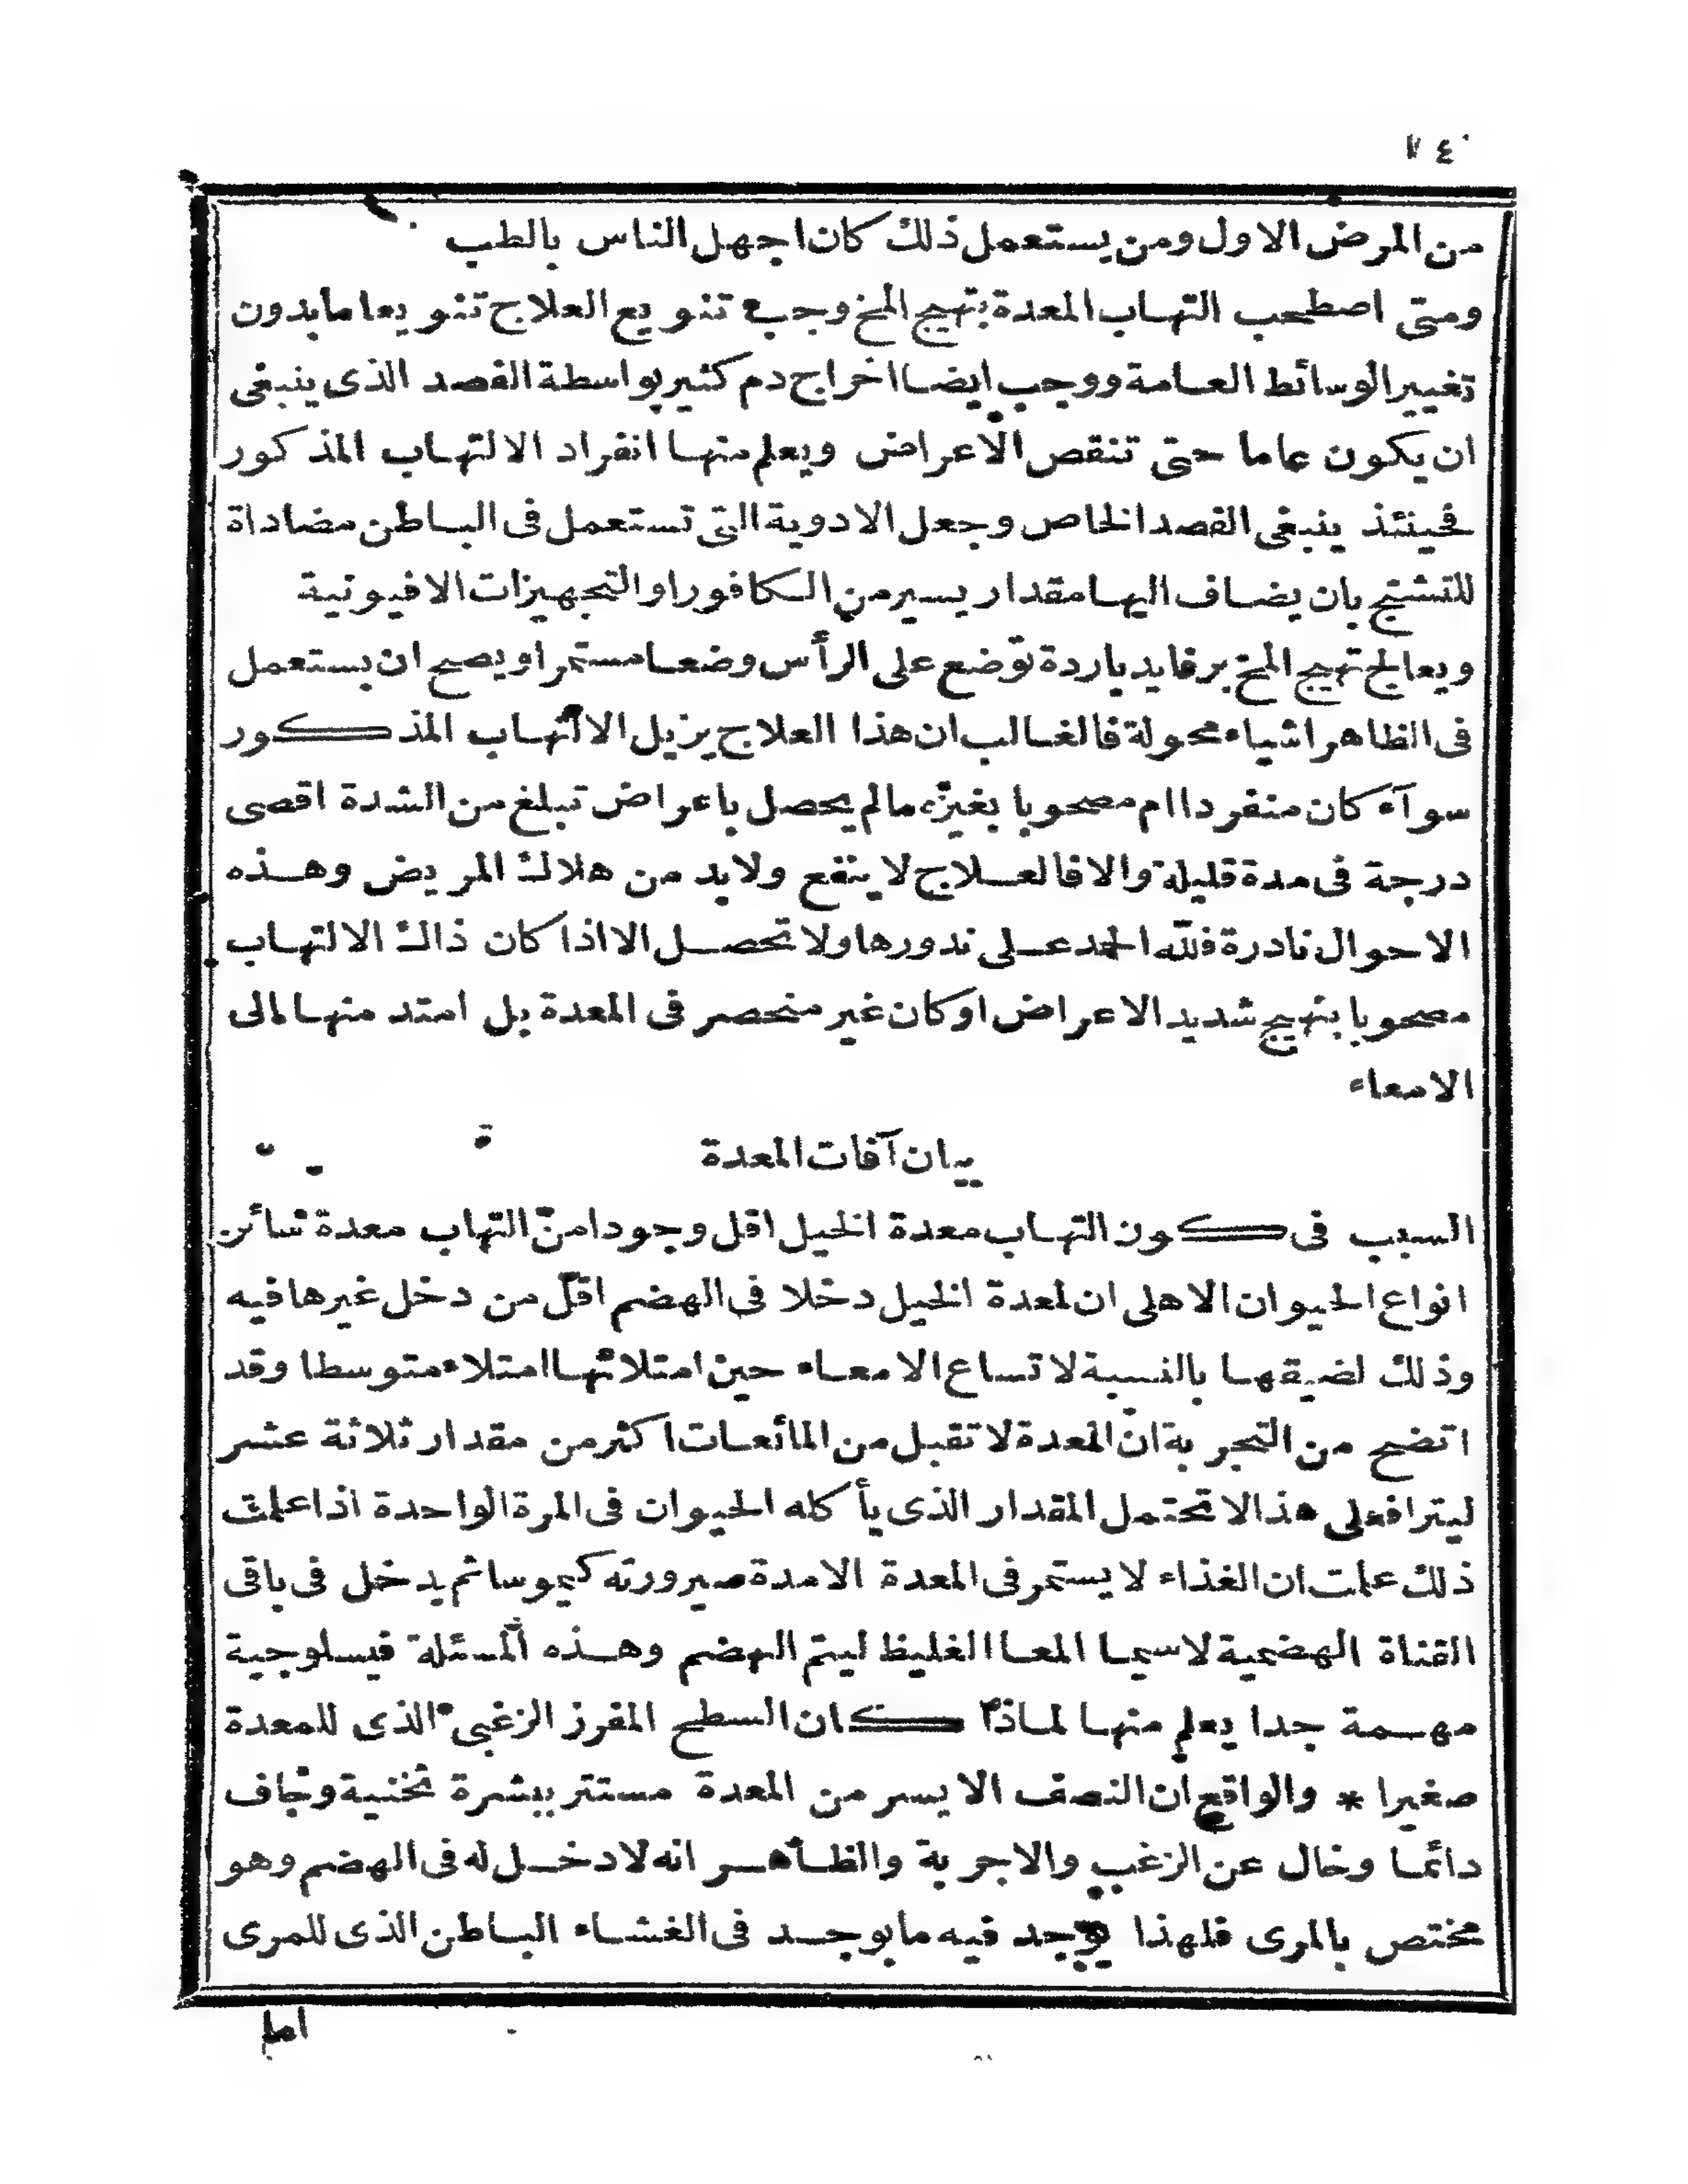 من المرض الاول ومن يستعمل ذلك كان اجهل الناس بالطب
ومتى اصطحب التهاب المعدة بتهيج المخ وجب تنويع العلاج تنويعا ما بدون
تغيير الوسائط العامة ووجب ايضا اخراج دم كثير بواسطة الفصد الذى ينبغى
ان يكون عاما حتى تنقص الاعراض ويعلم منها انفراد الالتهاب المذكور
فحينئذ ينبغى الفصد الخاص وجعل الادوية التى تستعمل فى الباطن مضاداة
للتشنج بان يضاف اليها مقدار يسير من الكافور او التجهيزات الافيونية
ويعالج تهيج المخ برفايد باردة توضع على الرأس وضعا مستمرا ويصح ان يستعمل
فى الظاهر اشياء محولة فالغالب ان هذا العلاج يزيل الالتهاب المذكور
سوآء كان منفردا ام مصحوبا بغيره ما لم يحصل باعراض تبلغ من الشدة اقصى
درجة فى مدة قليلة والا فالعلاج لا ينفع ولا بد من هلاك المريض وهذه
الاحوال نادرة فلله الحمد على ندورها ولا تحصل الا اذا كان ذاك الالتهاب
مصحوبا بتهيج شديد الاعراض او كان غير منحصر فى المعدة بل امتد منها الى
الامعاء
بيان آفات المعدة
السبب فى كون التهاب معدة الخيل اقل وجودا من التهاب معدة سائر
انواع الحيوان الاهلى ان لمعدة الخيل دخلا فى الهضم اقل من دخل غيرها فيه
وذلك لضيقها بالنسبة لاتساع الامعاء حين امتلائها امتلاء متوسطا وقد
اتضح من التجربة ان المعدة لا تقبل من المائعات اكثر من مقدار ثلاثة عشر
ليترا فعلى هذا لا تحتمل المقدار الذى يأكله الحيوان فى المرة الواحدة اذا علمت
ذلك علمت ان الغذاء لا يستمر فى المعدة الا مدة صيرورته كيموسا ثم يدخل فى باقى
القناة الهضمية لا سيما المعا الغليظ ليتم الهضم وهذه المسئلة فيسلوجية
مهمة جدا يعلم منها لماذا كان السطح المفرز الزغبى الذى للمعدة
صغيرا * والواقع ان النصف الايسر من المعدة مستتر ببشرة ثخنية وجاف
دائما وخال عن الزغب والاجربة والظاهر انه لا دخل له فى الهضم وهو
مختص بالمرى فلهذا يوجد فيه ما يوجد فى الغشاء الباطن الذى للمرى